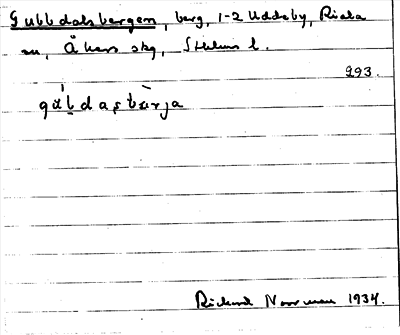 Gubbdalsbergen, berg, 1-2 Uddeby, Riala
sn, Åkers skg, Sthlms l.
293.
gu̇bdaṣbærja
Rickard Noorman 1934.